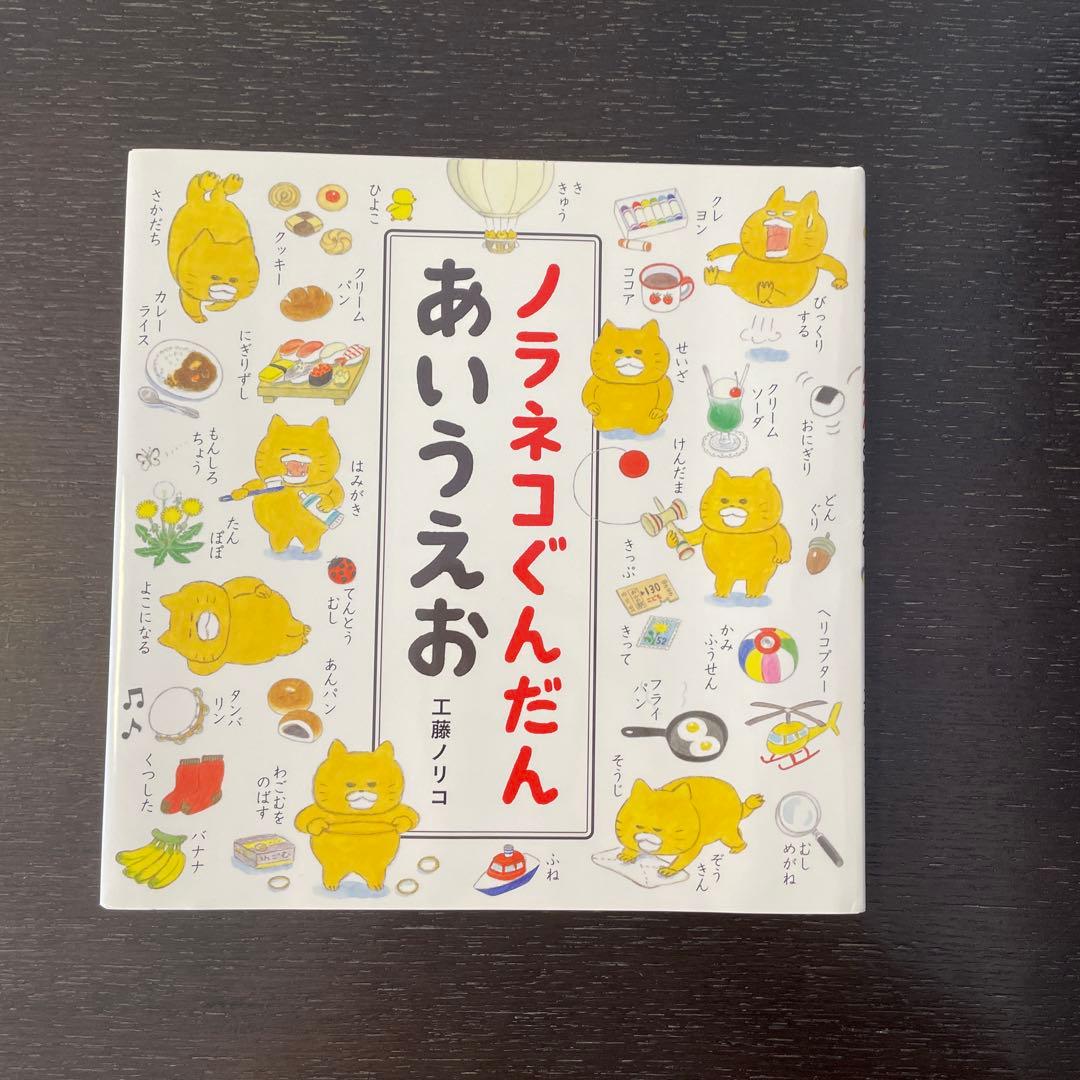 ノラネコぐんだん
あいうえお
工藤ノリコ
びっくり
する
クレ
ヨン
ココア
き
きゅう
ひよこ
クッキー
さかだち
クリーム
パン
にぎりずし
カレー
ライス
せいざ
クリーム
ソーダ
おにぎり
けんだま
どん
ぐり
はみがき
もんしろ
ちょう
たん
ぽぽ
てんとう
むし
よこになる
きっぷ
130
こども
きって
52
かみ
ふうせん
ヘリコプター
フライ
パン
あんパン
タンバ
リン
くつした
わごむを
のばす
わごむ
バナナ
ふね
そうじ
ぞう
きん
むし
めがね